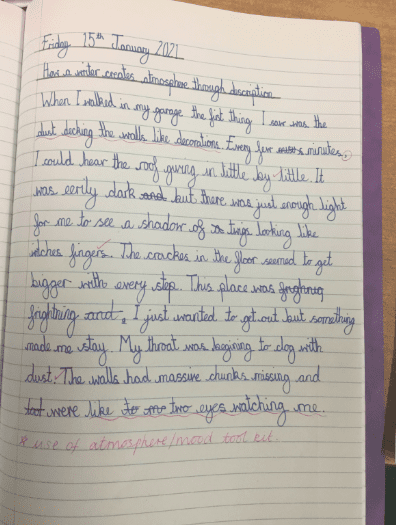 Friday 15th January 2021
How a writer creates atmosphere through description
When I walked in my garage the first thing I saw was the
dust decking the walls like decorations. Every few minutes,
I could hear the roof giving in little by little. It
was eerily dark and but there was just enough light
for me to see a shadow of twigs looking like
witches fingers. The crackes in the floor seemed to get
bigger with every step. This place was
frightning and, I just wanted to get out but something
made me stay. My throat was begining to clog with
dust. The walls had massive chunks missing and
were like two eyes watching me.
* use of atmosphere/mood tool kit.